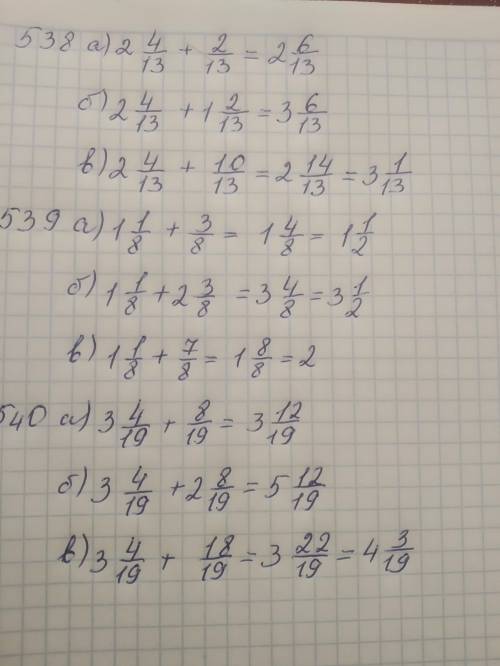 538 а) 2 4/13 + 2/13 = 2 6/13
б) 2 4/13 + 1 2/13 = 3 6/13
в) 2 4/13 + 10/13 = 2 14/13 = 3 1/13
539 а) 1 1/8 + 3/8 = 1 4/8 = 1 1/2
б) 1 1/8 + 2 3/8 = 3 4/8 = 3 1/2
в) 1 1/8 + 7/8 = 1 8/8 = 2
540 а) 3 4/19 + 8/19 = 3 12/19
б) 3 4/19 + 2 8/19 = 5 12/19
в) 3 4/19 + 18/19 = 3 22/19 = 4 3/19